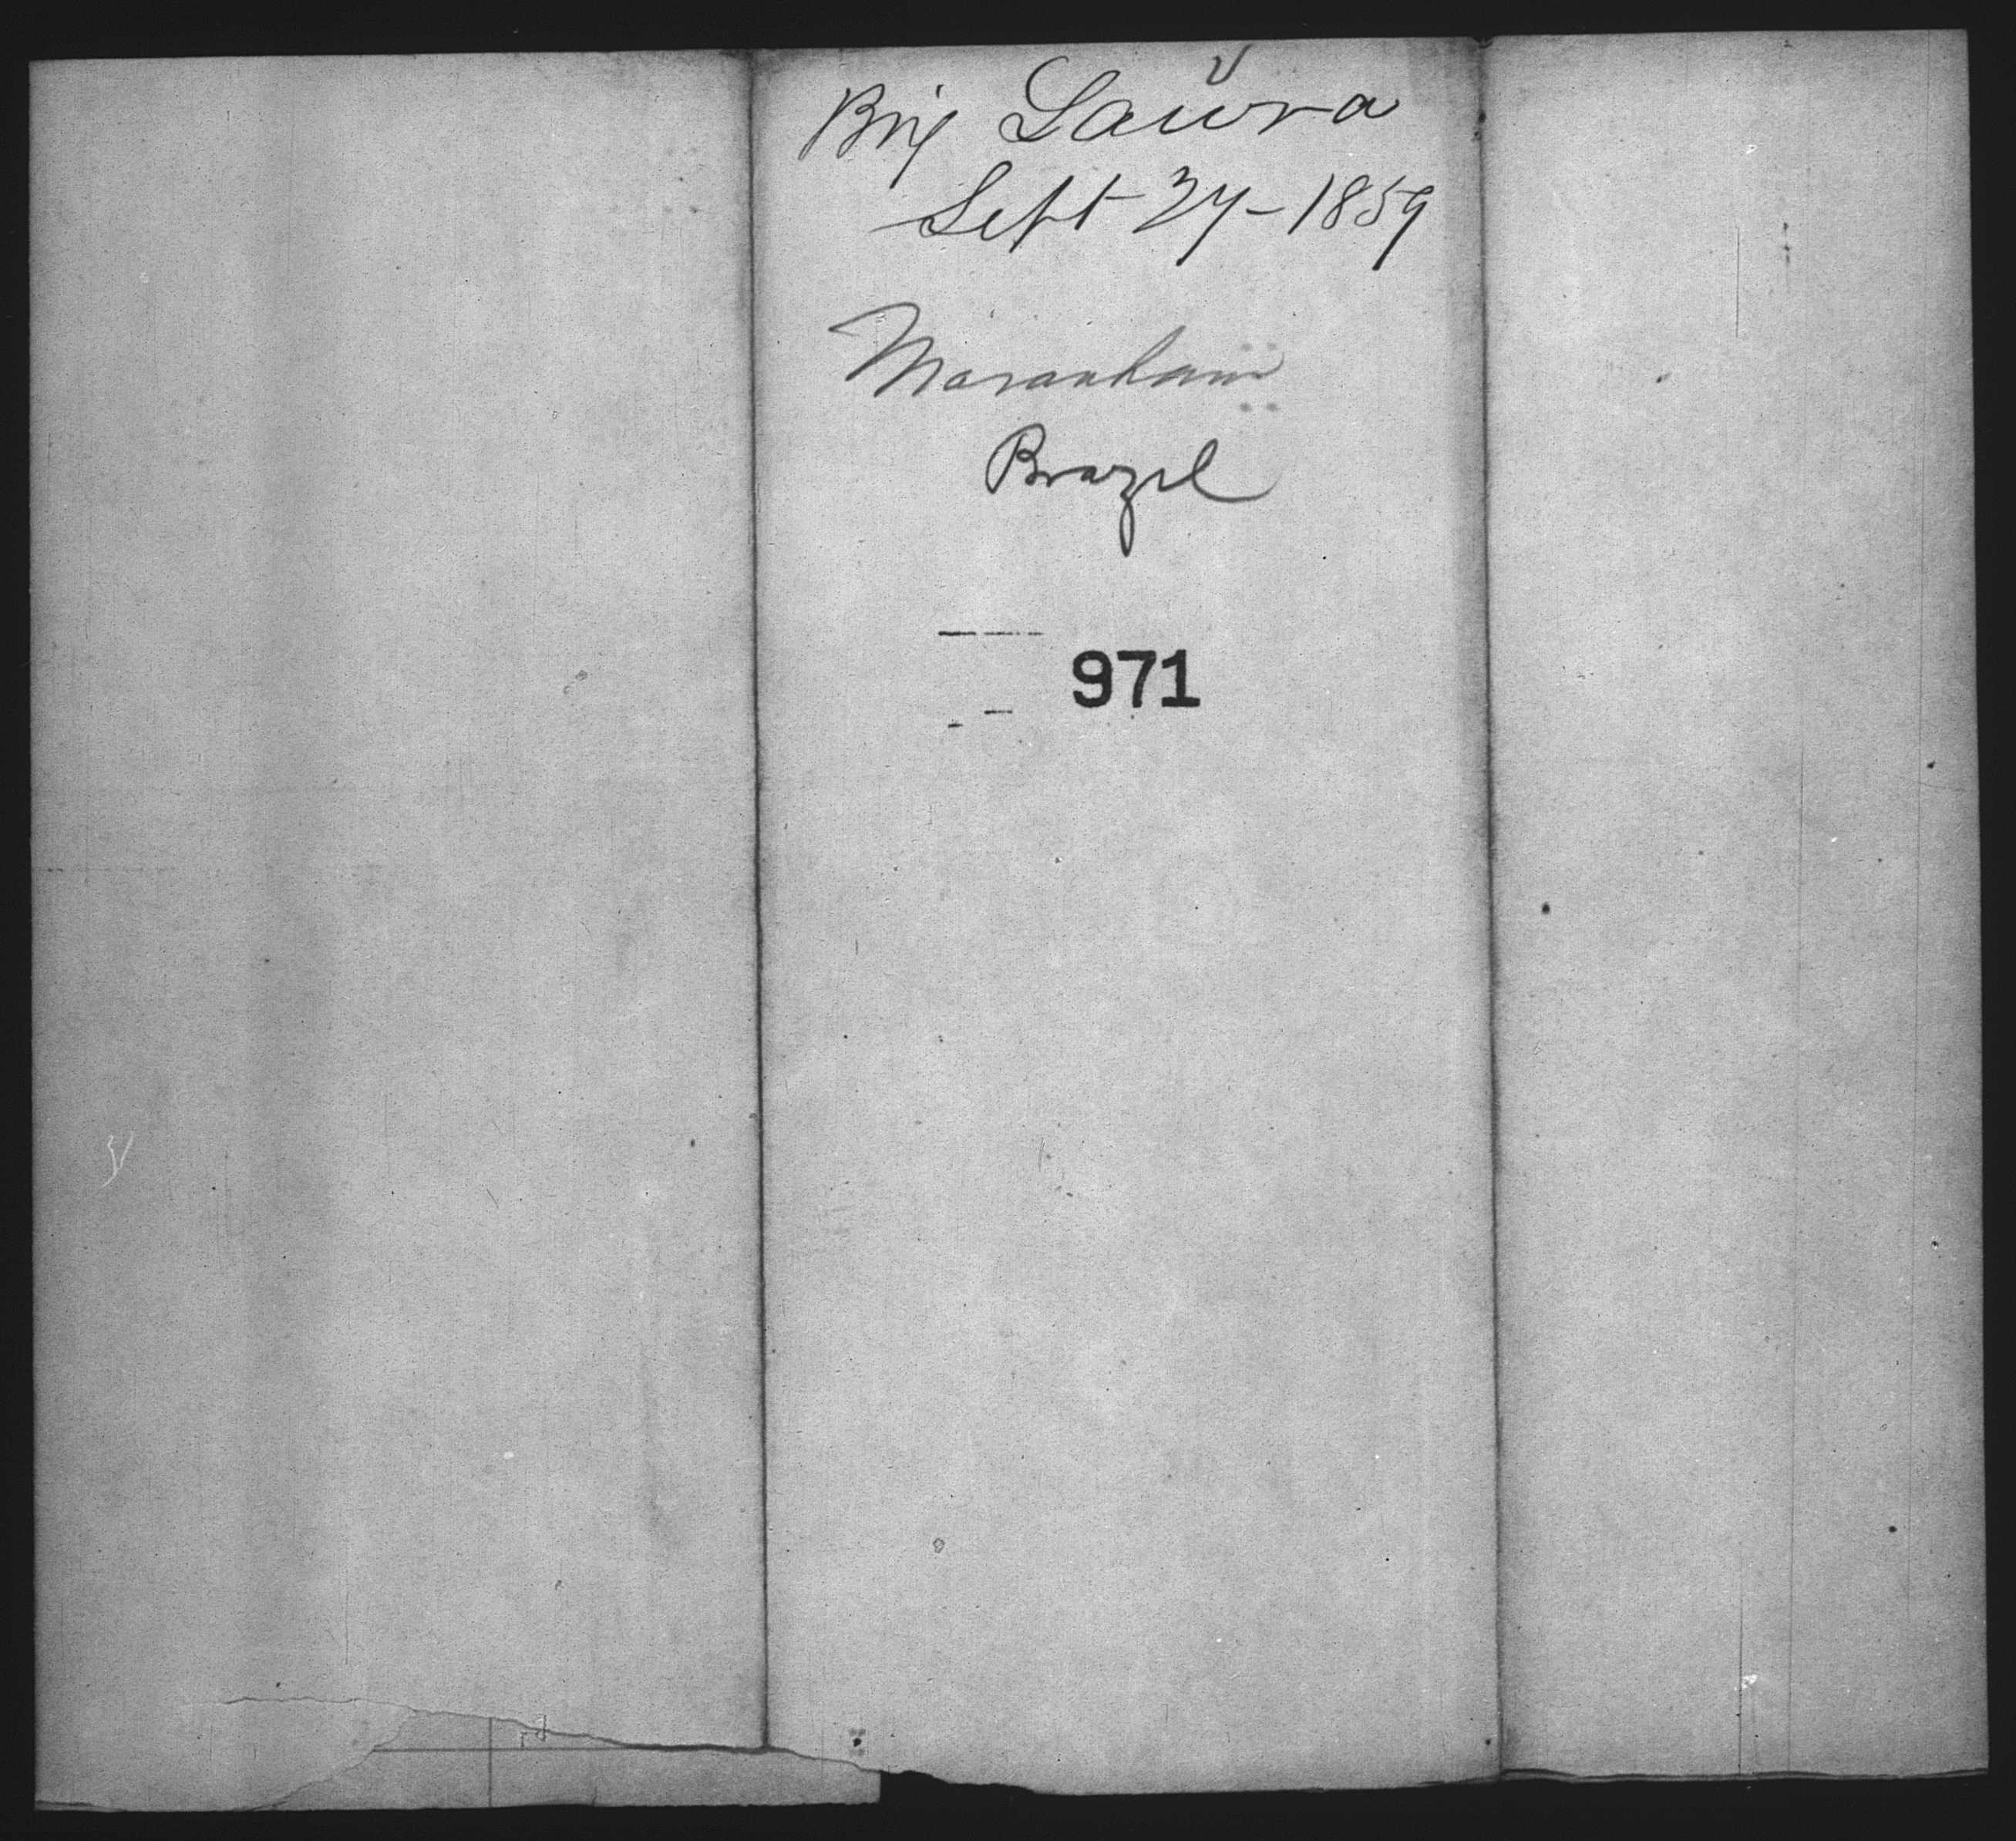 Brig Laura
Sept 27 - 1859
Maranham
Brazil
971